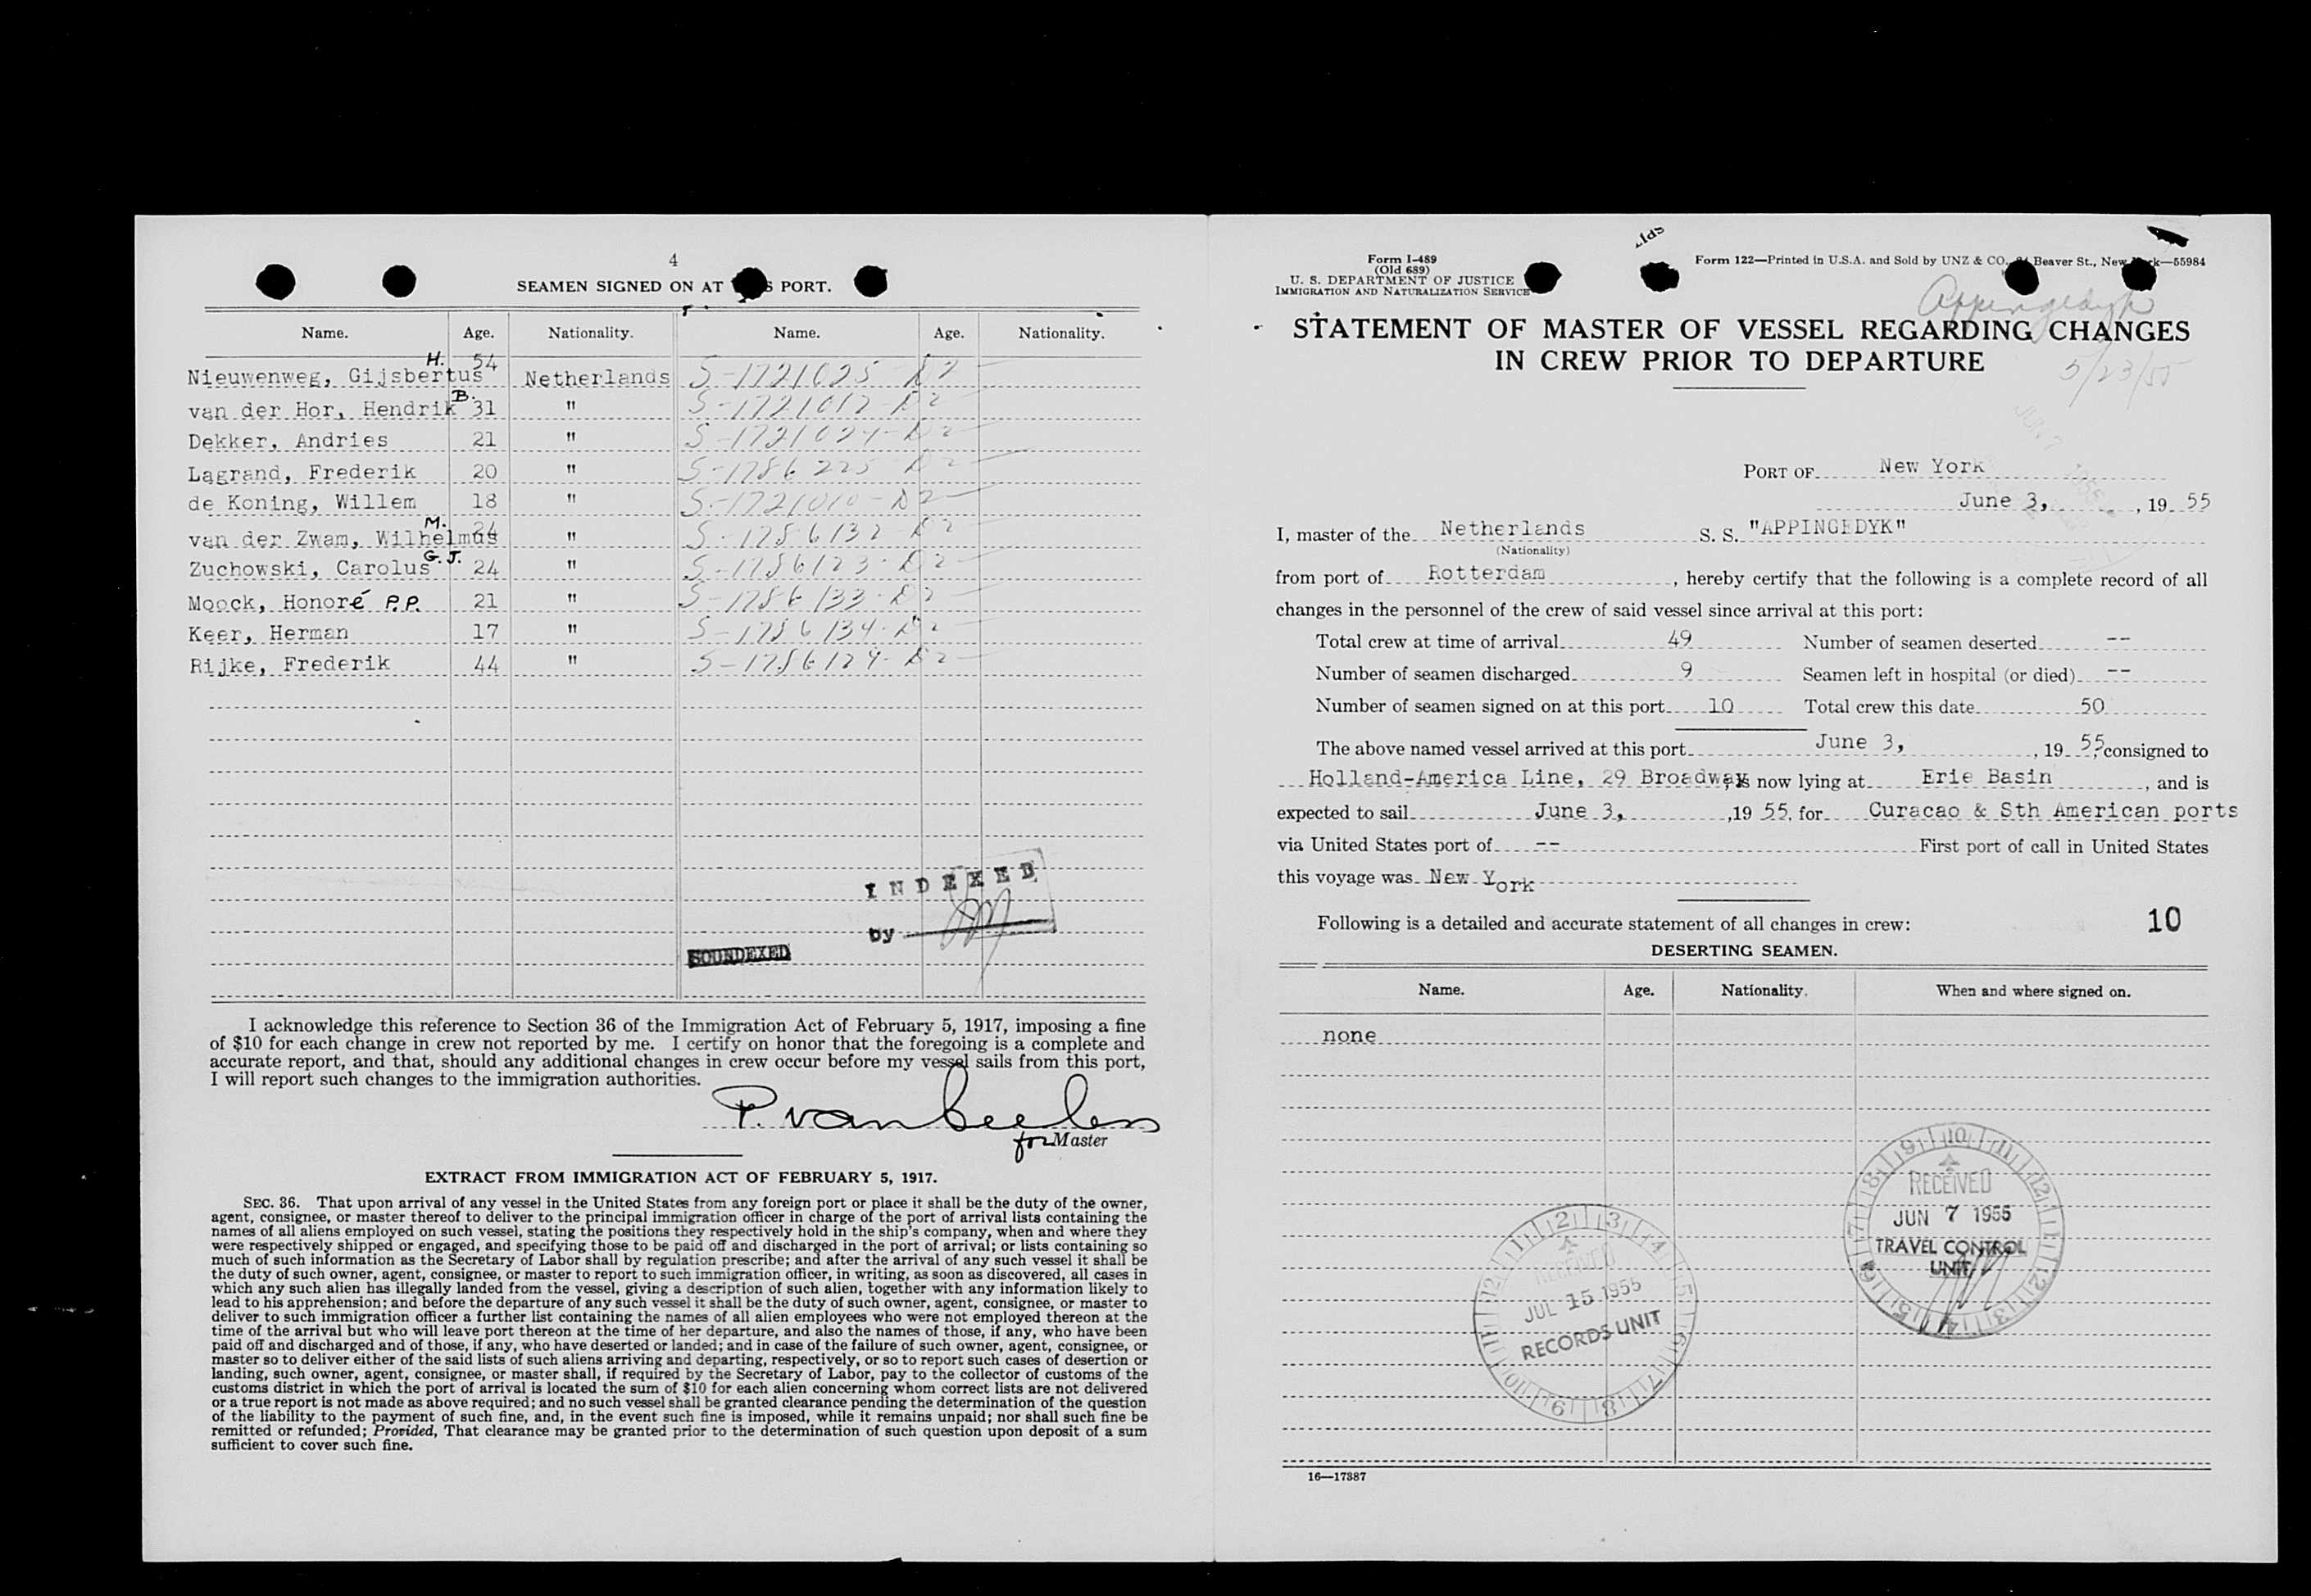 4
SEAMEN SIGNED ON AT S PORT.
Name. Age. Nationality. Name. Age. Nationality.
Nieuwenweg, Gijsbertus H. 54 Netherlands S-1721025 D2
van der Hor, Hendrik B. 31 " S-1721012 D2
Dekker, Andries 21 " S-1721024-D2
Lagrand, Frederik 20 " S-1786225 D2
de Koning, Willem 18 " S-1721010-D2
van der Zwam, Wilhelmus M. 24 " S-1786132 D2
Zuchowski, Carolus G.J. 24 " S-1786123-D2
Moock, Honoré P.P. 21 " S-1786133-D2
Keer, Herman 17 " S-1786134-D2
Rijke, Frederik 44 " S-1786124-D2
INDEXED
by
SOUNDEXED
I acknowledge this reference to Section 36 of the Immigration Act of February 5, 1917, imposing a fine
of $10 for each change in crew not reported by me. I certify on honor that the foregoing is a complete and
accurate report, and that, should any additional changes in crew occur before my vessel sails from this port,
I will report such changes to the immigration authorities.
P. van
for Master
EXTRACT FROM IMMIGRATION ACT OF FEBRUARY 5, 1917.
SEC. 36. That upon arrival of any vessel in the United States from any foreign port or place it shall be the duty of the owner,
agent, consignee, or master thereof to deliver to the principal immigration officer in charge of the port of arrival lists containing the
names of all aliens employed on such vessel, stating the positions they respectively hold in the ship's company, when and where they
were respectively shipped or engaged, and specifying those to be paid off and discharged in the port of arrival; or lists containing so
much of such information as the Secretary of Labor shall by regulation prescribe; and after the arrival of any such vessel it shall be
the duty of such owner, agent, consignee, or master to report to such immigration officer, in writing, as soon as discovered, all cases in
which any such alien has illegally landed from the vessel, giving a description of such alien, together with any information likely to
lead to his apprehension; and before the departure of any such vessel it shall be the duty of such owner, agent, consignee, or master to
deliver to such immigration officer a further list containing the names of all alien employees who were not employed thereon at the
time of the arrival but who will leave port thereon at the time of her departure, and also the names of those, if any, who have been
paid off and discharged and of those, if any, who have deserted or landed; and in case of the failure of such owner, agent, consignee, or
master so to deliver either of the said lists of such aliens arriving and departing, respectively, or so to report such cases of desertion or
landing, such owner, agent, consignee, or master shall, if required by the Secretary of Labor, pay to the collector of customs of the
customs district in which the port of arrival is located the sum of $10 for each alien concerning whom correct lists are not delivered
or a true report is not made as above required; and no such vessel shall be granted clearance pending the determination of the question
of the liability to the payment of such fine, and, in the event such fine is imposed, while it remains unpaid; nor shall such fine be
remitted or refunded; Provided, That clearance may be granted prior to the determination of such question upon deposit of a sum
sufficient to cover such fine.
Form I-489
(Old 689)
U. S. DEPARTMENT OF JUSTICE
IMMIGRATION AND NATURALIZATION SERVICE
Form 122—Printed in U.S.A. and Sold by UNZ & CO. Beaver St., New k—55984
Appingedyk
STATEMENT OF MASTER OF VESSEL REGARDING CHANGES
IN CREW PRIOR TO DEPARTURE
5/23/55
PORT OF New York
June 3, , 19 55
I, master of the Netherlands S. S. "APPINGEDYK"
(Nationality)
from port of Rotterdam , hereby certify that the following is a complete record of all
changes in the personnel of the crew of said vessel since arrival at this port:
Total crew at time of arrival 49 Number of seamen deserted --
Number of seamen discharged 9 Seamen left in hospital (or died) --
Number of seamen signed on at this port 10 Total crew this date 50
The above named vessel arrived at this port June 3, , 19 55, consigned to
Holland-America Line, 29 Broadway, is now lying at Erie Basin , and is
expected to sail June 3, ,19 55, for Curacao & Sth American ports
via United States port of -- First port of call in United States
this voyage was New York
Following is a detailed and accurate statement of all changes in crew:
10
DESERTING SEAMEN.
Name. Age. Nationality. When and where signed on.
none
RECEIVED
JUN 7 1955
TRAVEL CONTROL
UNIT
RECEIVED
JUL 15 1955
RECORDS UNIT
16—17887